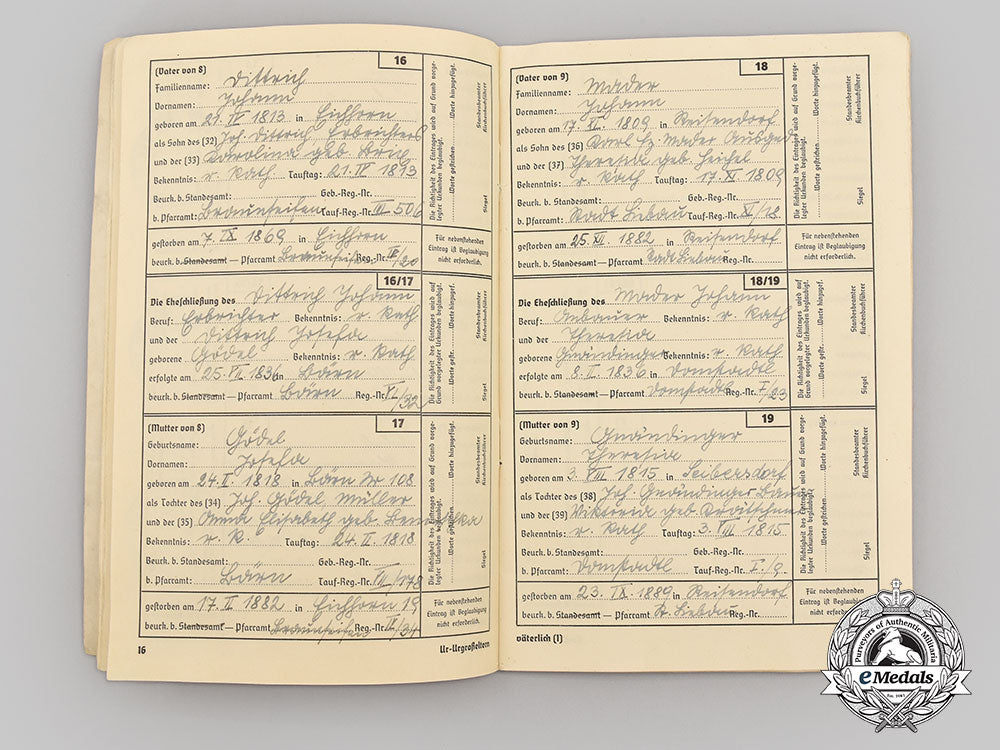 16
(Vater von 8)
Familienname: Dittrich
Vornamen: Johann
geboren am 21. IV 1813 in Eichhorn
als Sohn des (32) Joh. Dittrich Erbrichters
und der (33) Karolina geb.
Bekenntnis: r. Kath Tauftag: 21. IV 1813
Beurk. b. Standesamt: Geb.-Reg.-Nr.
b. Pfarramt: Braunseifen Tauf-Reg.-Nr. III 506
gestorben am 7. IX 1869 in Eichhorn
beurk. b. Standesamt — Pfarramt Braunseifen Reg.-Nr. /20
Die Richtigkeit des Eintrages wird auf Grund vorgelegter Urkunden beglaubigt.
Worte gestrichen. Worte hinzugefügt.
Siegel Standesbeamter Kirchenbuchführer
Für nebenstehenden
Eintrag ist Beglaubigung
nicht erforderlich.
16/17
Die Eheschließung des Dittrich Johann
Beruf: Erbrichter Bekenntnis: r. Kath
und der Dittrich Josefa
geborene Gödel Bekenntnis: r. Kath
erfolgte am 25. VII. 1836 in Bärn
beurk. b. Standesamt — Pfarramt Bärn Reg.-Nr. VI/32
Die Richtigkeit des Eintrages wird auf Grund vorgelegter Urkunden beglaubigt.
Worte gestr. Worte hinzugef.
Siegel Standesbeamter Kirchenbuchführer
17
(Mutter von 8)
Geburtsname: Gödel
Vornamen: Josefa
geboren am 24. II. 1818 in Bärn Nr 108
als Tochter des (34) Joh. Gödel Müller
und der (35) Anna Elisabeth geb.
Bekenntnis: r. K. Tauftag: 24. II. 1818
Beurk. b. Standesamt: Geb.-Reg.-Nr.
b. Pfarramt: Bärn Tauf-Reg.-Nr. /178
gestorben am 17. II 1882 in Eichhorn 19
beurk. b. Standesamt — Pfarramt Braunseifen Reg.-Nr. /34
Die Richtigkeit des Eintrages wird auf Grund vorgelegter Urkunden beglaubigt.
Worte gestrichen. Worte hinzugefügt.
Siegel Standesbeamter Kirchenbuchführer
Für nebenstehenden
Eintrag ist Beglaubigung
nicht erforderlich.
16 Ur-Urgroßeltern
18
(Vater von 9)
Familienname: Mader
Vornamen: Johann
geboren am 17. XI. 1809 in Reisendorf
als Sohn des (36) Karl Fz Mader Ausged
und der (37) Theresia geb.
Bekenntnis: r. Kath Tauftag: 17. XI 1809
Beurk. b. Standesamt: Geb.-Reg.-Nr.
b. Pfarramt: Stadt Liebau Tauf-Reg.-Nr. /18
gestorben am 25. XI. 1882 in Reisendorf
beurk. b. Standesamt — Pfarramt Stadt Liebau Reg.-Nr.
Die Richtigkeit des Eintrages wird auf Grund vorgelegter Urkunden beglaubigt.
Worte gestrichen. Worte hinzugefügt.
Siegel Standesbeamter Kirchenbuchführer
Für nebenstehenden
Eintrag ist Beglaubigung
nicht erforderlich.
18/19
Die Eheschließung des Mader Johann
Beruf: Anbauer Bekenntnis: r. Kath
und der Theresia
geborene Gnändinger Bekenntnis: r. Kath
erfolgte am 8. II. 1836 in Domstadtl
beurk. b. Standesamt — Pfarramt Domstadtl Reg.-Nr. I/23
Die Richtigkeit des Eintrages wird auf Grund vorgelegter Urkunden beglaubigt.
Worte gestr. Worte hinzugef.
Siegel Standesbeamter Kirchenbuchführer
19
(Mutter von 9)
Geburtsname: Gnändinger
Vornamen: Theresia
geboren am 3. VIII 1815 in Seibersdorf
als Tochter des (38) Joh. Gnändinger
und der (39) Viktoria geb.
Bekenntnis: r. Kath Tauftag: 3. VIII. 1815
Beurk. b. Standesamt: Geb.-Reg.-Nr.
b. Pfarramt: Domstadtl Tauf-Reg.-Nr. I./9.
gestorben am 23. IX 1889 in Reisendorf
beurk. b. Standesamt — Pfarramt St. Liebau Reg.-Nr.
Die Richtigkeit des Eintrages wird auf Grund vorgelegter Urkunden beglaubigt.
Worte gestrichen. Worte hinzugefügt.
Siegel Standesbeamter Kirchenbuchführer
Für nebenstehenden
Eintrag ist Beglaubigung
nicht erforderlich.
väterlich (1)
Purveyors of Authentic Militaria
eMedals